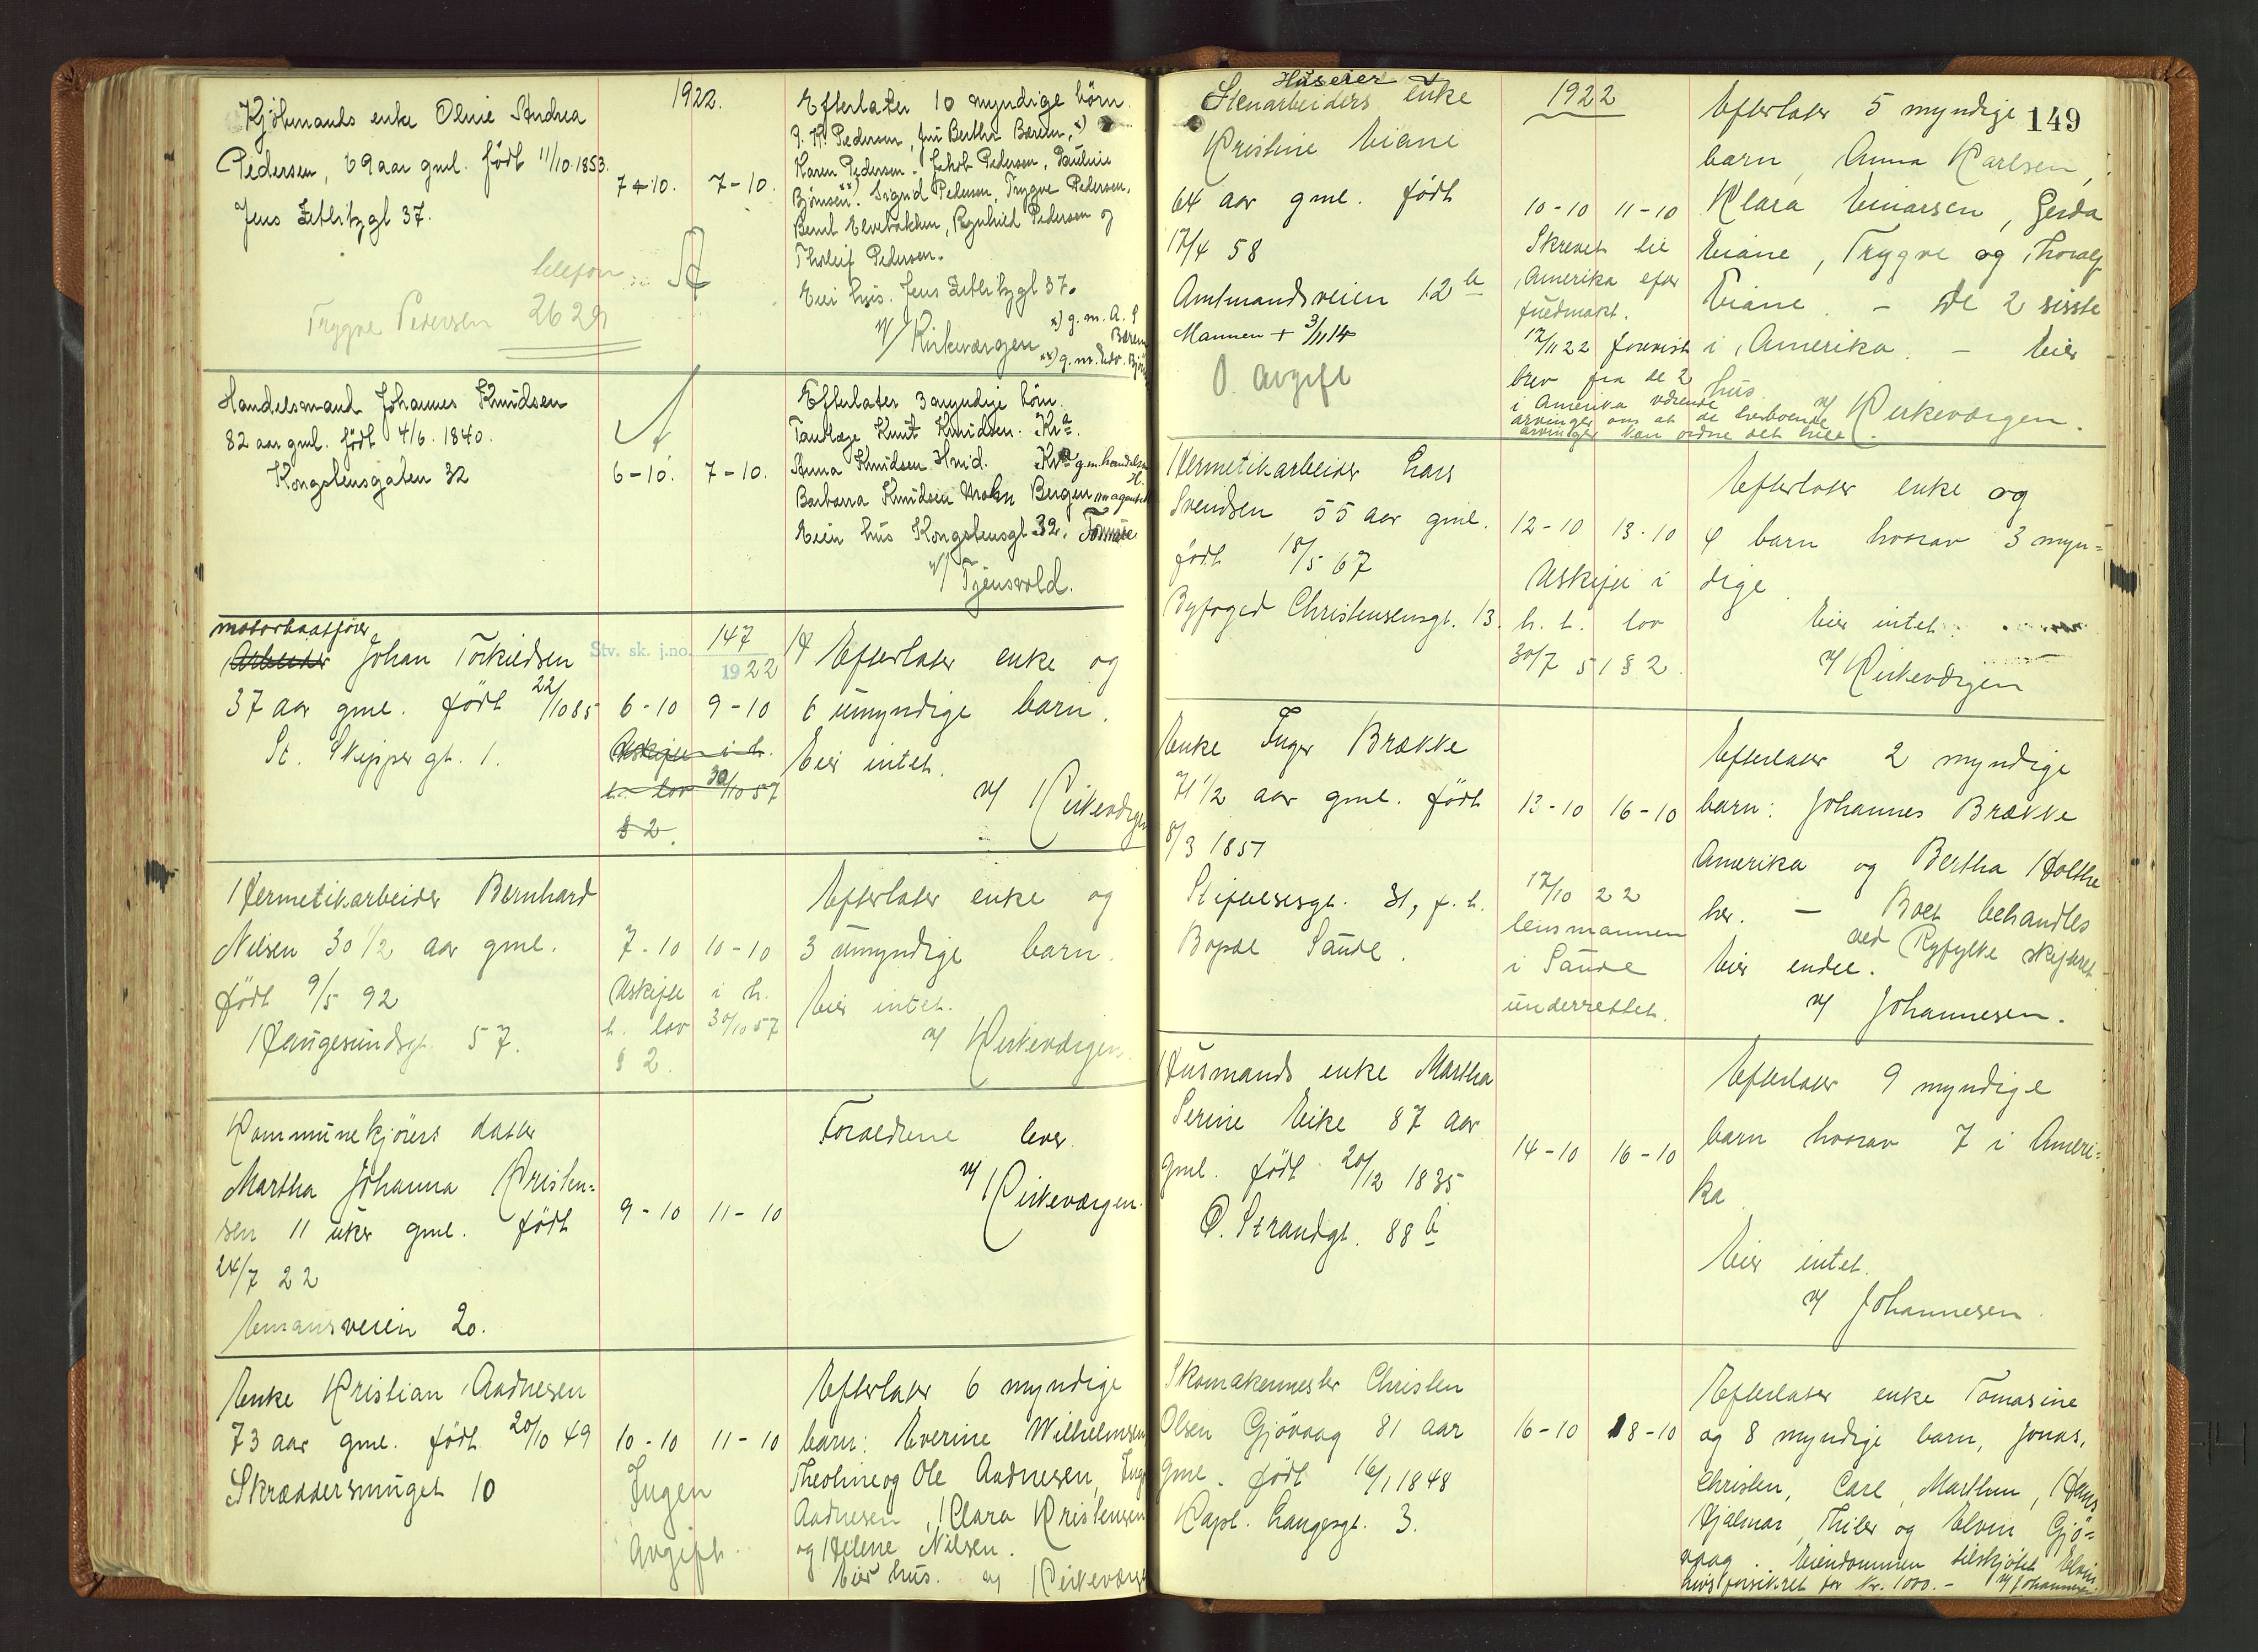 1922.
Kjöbmands enke Oline Andrea
Pedersen, 69 aar gml. født 11/10.1853.
Jens Zetlitzgt 37.
7-10. 7-10.
telefon
Trygve Pedersen 2629
Efterlater 10 myndige börn.
P. K. Pedersen, fru Berthe Bærem, x)
Karen Pedersen. Jakob Pedersen, Pauline
Björnsen xx). Sigrid Pedersen, Trygve Pedersen,
Bernt Elvebakken, Ragnhild Pedersen og
Tholeif Pedersen.
Eier hus. Jens Zetlitzgt 37.
v/ Kirkevergen
x) g. m. A. S
Bærem
xx) g. m. Edv. Bjö
Handelsmand Johannes Knudsen
82 aar gml. født 4/6. 1840.
Kongstensgaten 32
6-10. 7-10.
Efterlater 3 myndige börn.
Tandlæge Knut Knudsen. Kra.
Anna Knudsen Hmd. Kra g.m. handelsm
Barbara Knudsen Mohn Bergen
Eier hus Kongstensgt 32.
v/ Tjensvold.
motorbaatfører
Arbeider Johan Torkildsen
37 aar gml. født 22/10 85
St. Skippergt. 1.
Stv. sk. j.no. 147
1922
6-10 9-10
Uskifte i h.
t. lov 30/10 57
§ 2.
Efterlater enke og
6 umyndige barn.
Eier intet.
v/ Kirkevergen
Hermetikarbeider Bernhard
Nilsen 30 1/2 aar gml.
født 9/5 92
Haugesundsgt. 57.
7-10 10-10
Uskifte i h.
t. lov 30/10 57
§ 2.
Efterlater enke og
3 umyndige barn.
Eier intet.
v/ Kirkevergen
Kommunekjörers datter
Martha Johanna Kristen=
sen 11 uker gml. født
24/7 22
Emausveien 20.
9-10 11-10
Forældrene lever.
v/ Kirkevergen.
Enke Kristian Aadnesen
73 aar gml. født 20/10 49
Skræddersmuget 10
10-10 11-10
Ingen
Avgift.
Efterlater 6 myndige
barn: Everine Wilhelmsen
Theoline og Ole Aadnesen, Inga
Aadnesen, Klara Kristensen
og Helene Nilsen.
Eier hus. v/ Kirkeverge
149
1922
Huseier
Stenarbeiders enke
Kristine Eiane
64 aar gml. født
17/4 58
Amtmandsveien 12 b
Mannen + 3/11 14
O. avgift
10-10 11-10
Skrevet til
Amerika efter
fuldmakt.
17/11 22 forevist
brev fra de 2
i Amerika værende
arvinger om at de herboende
arvinger kan ordne det hele.
Efterlater 5 myndige
barn, Anna Karlsen,
Klara Einarsen, Gerda
Eiane, Trygve og Thoralf
Eiane. - De 2 sisste
i Amerika. - Eier
hus.
v/ Kirkevergen.
Hermetikarbeider Lars
Svendsen 55 aar gml.
født 18/5 67
Byfoged Christensensgt. 13.
12-10 13-10
Uskifte i
h. t. lov
30/7 51 § 2.
Efterlater enke og
4 barn hvorav 3 myn=
dige
Eier intet.
v/ Kirkevergen
Enke Inger Brække
71 1/2 aar gml. født
8/3 1851
Stiftelsesgt. 31, f. t.
Bopæl Saude.
13-10 16-10
17/10 22
lensmannen
i Saude
underrettet.
Efterlater 2 myndige
barn: Johannes Brække
Amerika og Bertha Holthe
her. - Boet behandles
ved Ryfylke skifteret
Eier endel.
v/ Johannesen.
Husmands enke Martha
Serine Eike 87 aar
gml. født 20/12 1835
Ø. Strandgt. 88 b
14-10 16-10
Efterlater 9 myndige
barn hvorav 7 i Ameri=
ka
Eier intet.
v/ Johannesen.
Skomakermester Christen
Olsen Gjövaag 81 aar
gml. født 16/1 1848
Kapt. Langesgt. 3.
16-10 18-10
Efterlater enke Tomasine
og 8 myndige barn, Jonas,
Christen, Carl, Marthin, Hans
Hjalmar, Thiler og Elvin Gjö=
vaag. Eiendommen tilskjötet Elvin
hus forsikret for kr. 1000.- v/ Johannesen.